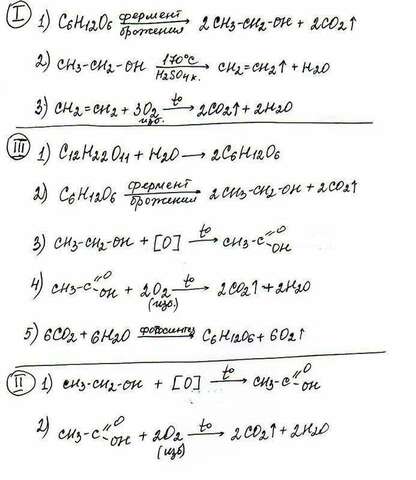 I 1) C6H12O6 фермент брожения → 2CH3-CH2-OH + 2CO2↑
2) CH3-CH2-OH 170°C H2SO4 к. → CH2=CH2↑ + H2O
3) CH2=CH2 + 3O2 изб. t° → 2CO2↑ + 2H2O
III 1) C12H22O11 + H2O → 2C6H12O6
2) C6H12O6 фермент брожения → 2CH3-CH2-OH + 2CO2↑
3) CH3-CH2-OH + [O] t° → CH3-C=O OH
4) CH3-C=O OH + 2O2 (изб.) t° → 2CO2↑ + 2H2O
5) 6CO2 + 6H2O фотосинтез → C6H12O6 + 6O2↑
II 1) CH3-CH2-OH + [O] t° → CH3-C=O OH
2) CH3-C=O OH + 2O2 (изб) t° → 2CO2↑ + 2H2O